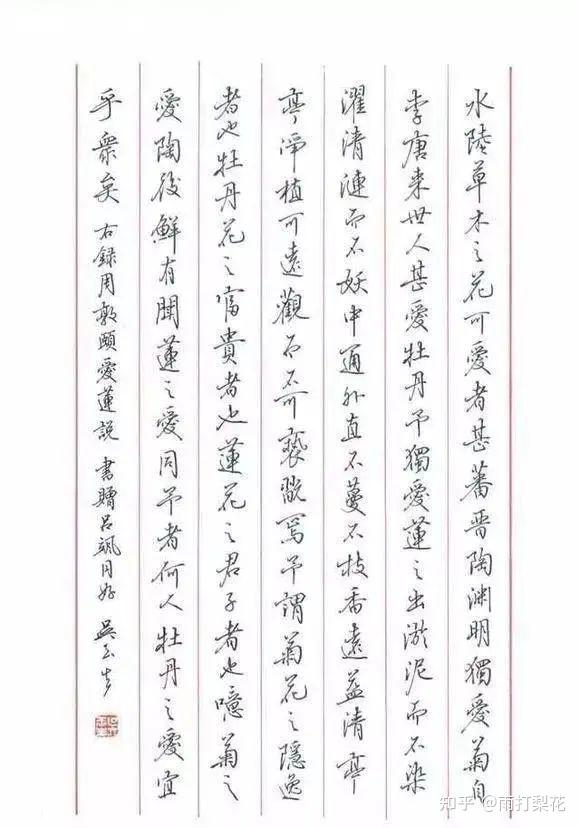 水陸草木之花可愛者甚蕃晉陶淵明獨愛菊自
李唐来世人甚愛牡丹予獨愛蓮之出淤泥而不染
濯清漣而不妖中通外直不蔓不枝香遠益清亭
亭淨植可遠觀而不可褻翫焉予謂菊花之隱逸
者也牡丹花之富貴者也蓮花之君子者也噫菊之
愛陶後鮮有聞蓮之愛同予者何人牡丹之愛宜
乎衆矣 右録周敦頤愛蓮説 書贈呂颯同好 吳玉生
知乎 @雨打梨花